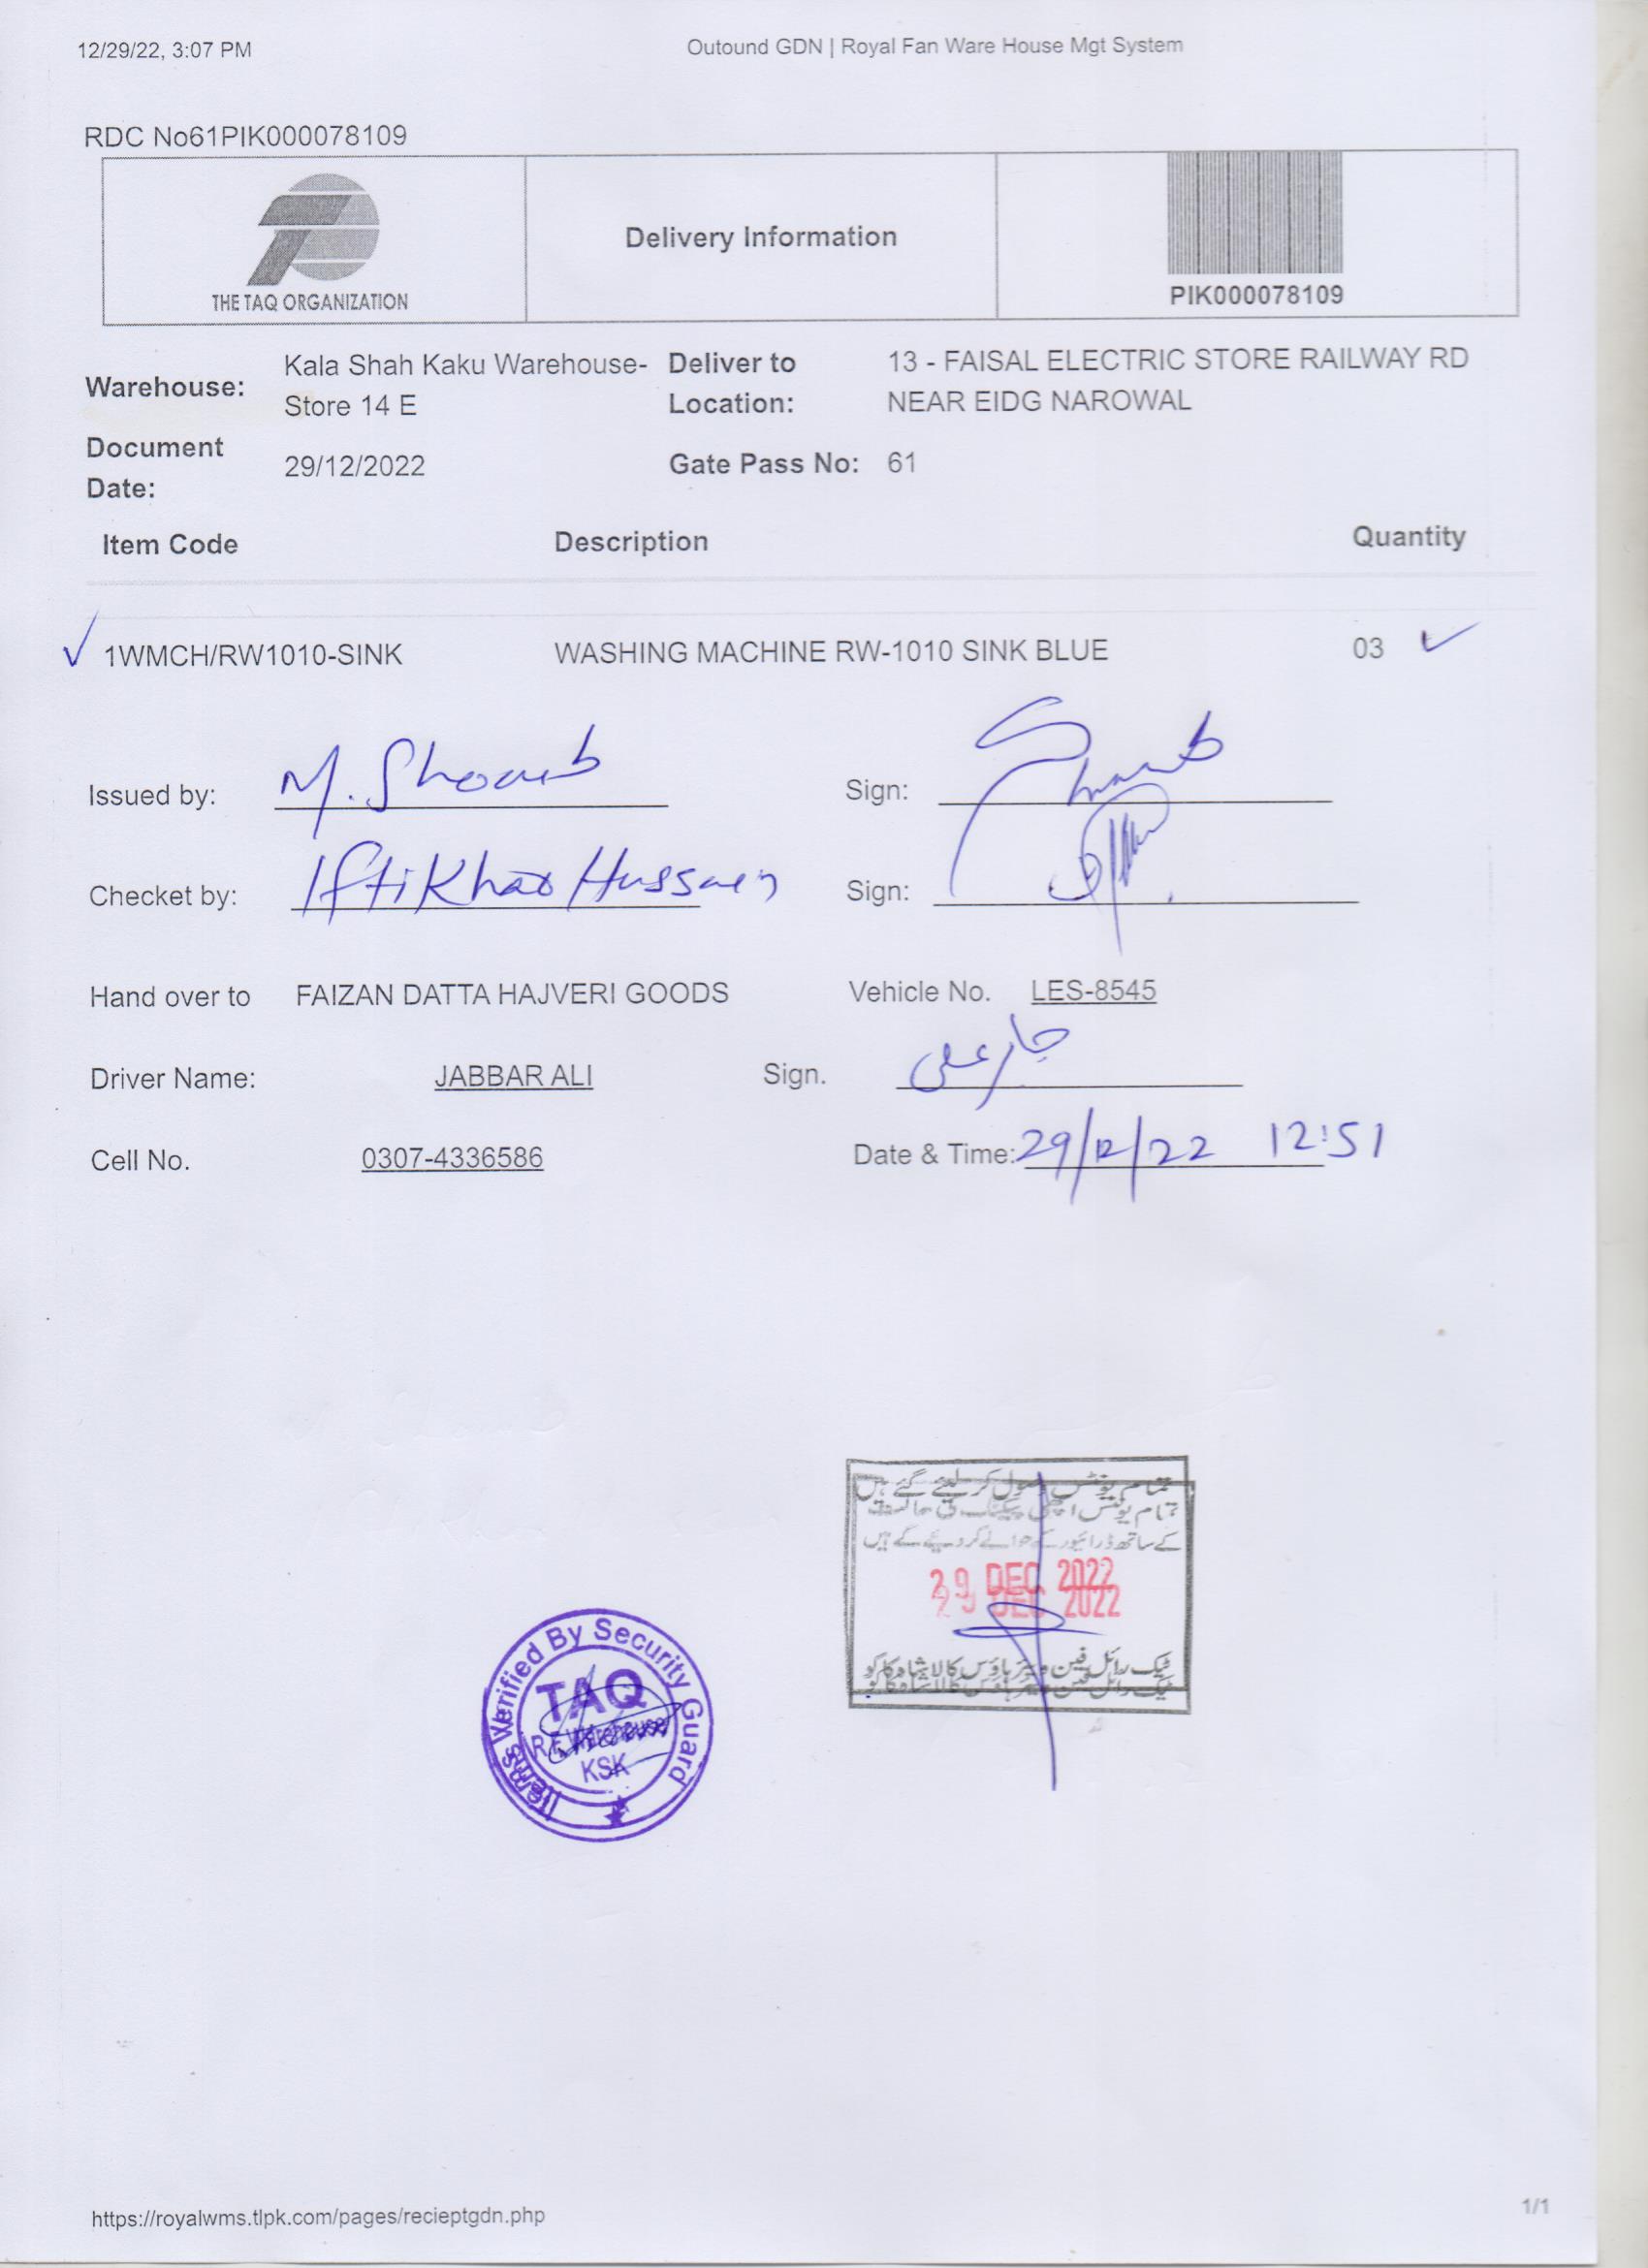 12/29/22, 3:07 PM
Outound GDN | Royal Fan Ware House Mgt System
RDC No61PIK000078109
THE TAQ ORGANIZATION
Delivery Information
PIK000078109
Warehouse: Kala Shah Kaku Warehouse-Store 14 E
Deliver to Location: 13 - FAISAL ELECTRIC STORE RAILWAY RD
NEAR EIDG NAROWAL
Document Date: 29/12/2022
Gate Pass No: 61
Item Code Description Quantity
1WMCH/RW1010-SINK WASHING MACHINE RW-1010 SINK BLUE 03
Issued by: M. Shoaib Sign: Shoaib
Checket by: Iftikhar Hussain Sign:
Hand over to FAIZAN DATTA HAJVERI GOODS Vehicle No. LES-8545
Driver Name: JABBAR ALI Sign. جبار علی
Cell No. 0307-4336586 Date & Time: 29/12/22 12:51
تمام یونٹس وصول کر لیئے گئے ہیں
تمام یونٹس اچھی پیکنگ کی حالت
کے ساتھ ڈرائیور کے حوالے کر دیئے گئے ہیں
29 DEC 2022
ٹیک رائل فین ویئر ہاؤس کالا شاہ کاکو
Items Verified By Security Guard
TAQ
R.F Warehouse
KSK
https://royalwms.tlpk.com/pages/recieptgdn.php
1/1